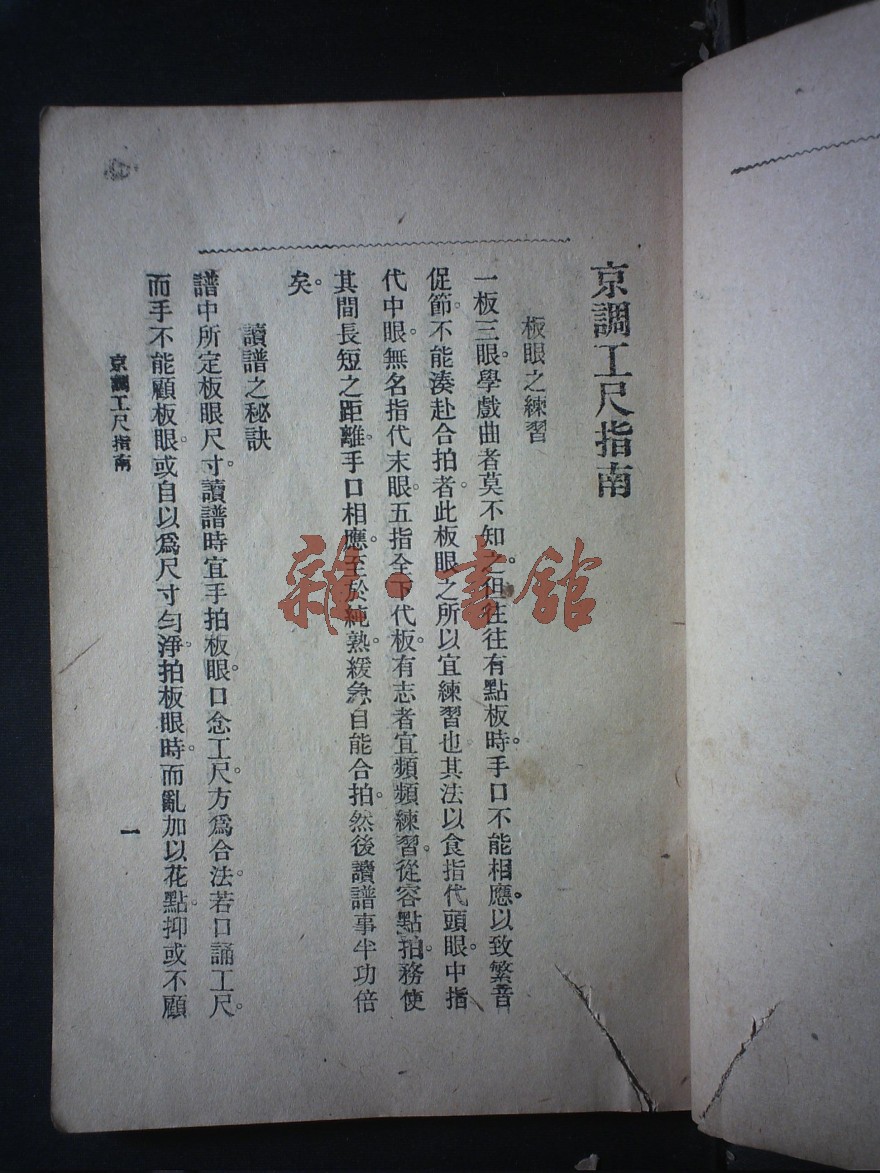 京調工尺指南
板眼之練習
一板三眼。學戲曲者莫不知之。但往往有點板時。手口不能相應。以致繁音
促節。不能湊赴合拍者。此板眼之所以宜練習也。其法以食指代頭眼。中指
代中眼。無名指代末眼。五指全下代板。有志者宜頻頻練習。從容點拍。務使
其間長短之距離。手口相應。至於純熟。緩急自能合拍。然後讀譜事半功倍
矣。
讀譜之秘訣
譜中所定板眼尺寸。讀譜時宜手拍板眼。口念工尺。方爲合法。若口誦工尺。
而手不能顧板眼。或自以爲尺寸勻淨。拍板眼時。而亂加以花點。抑或不顧
京調工尺指南
一
雜·書館